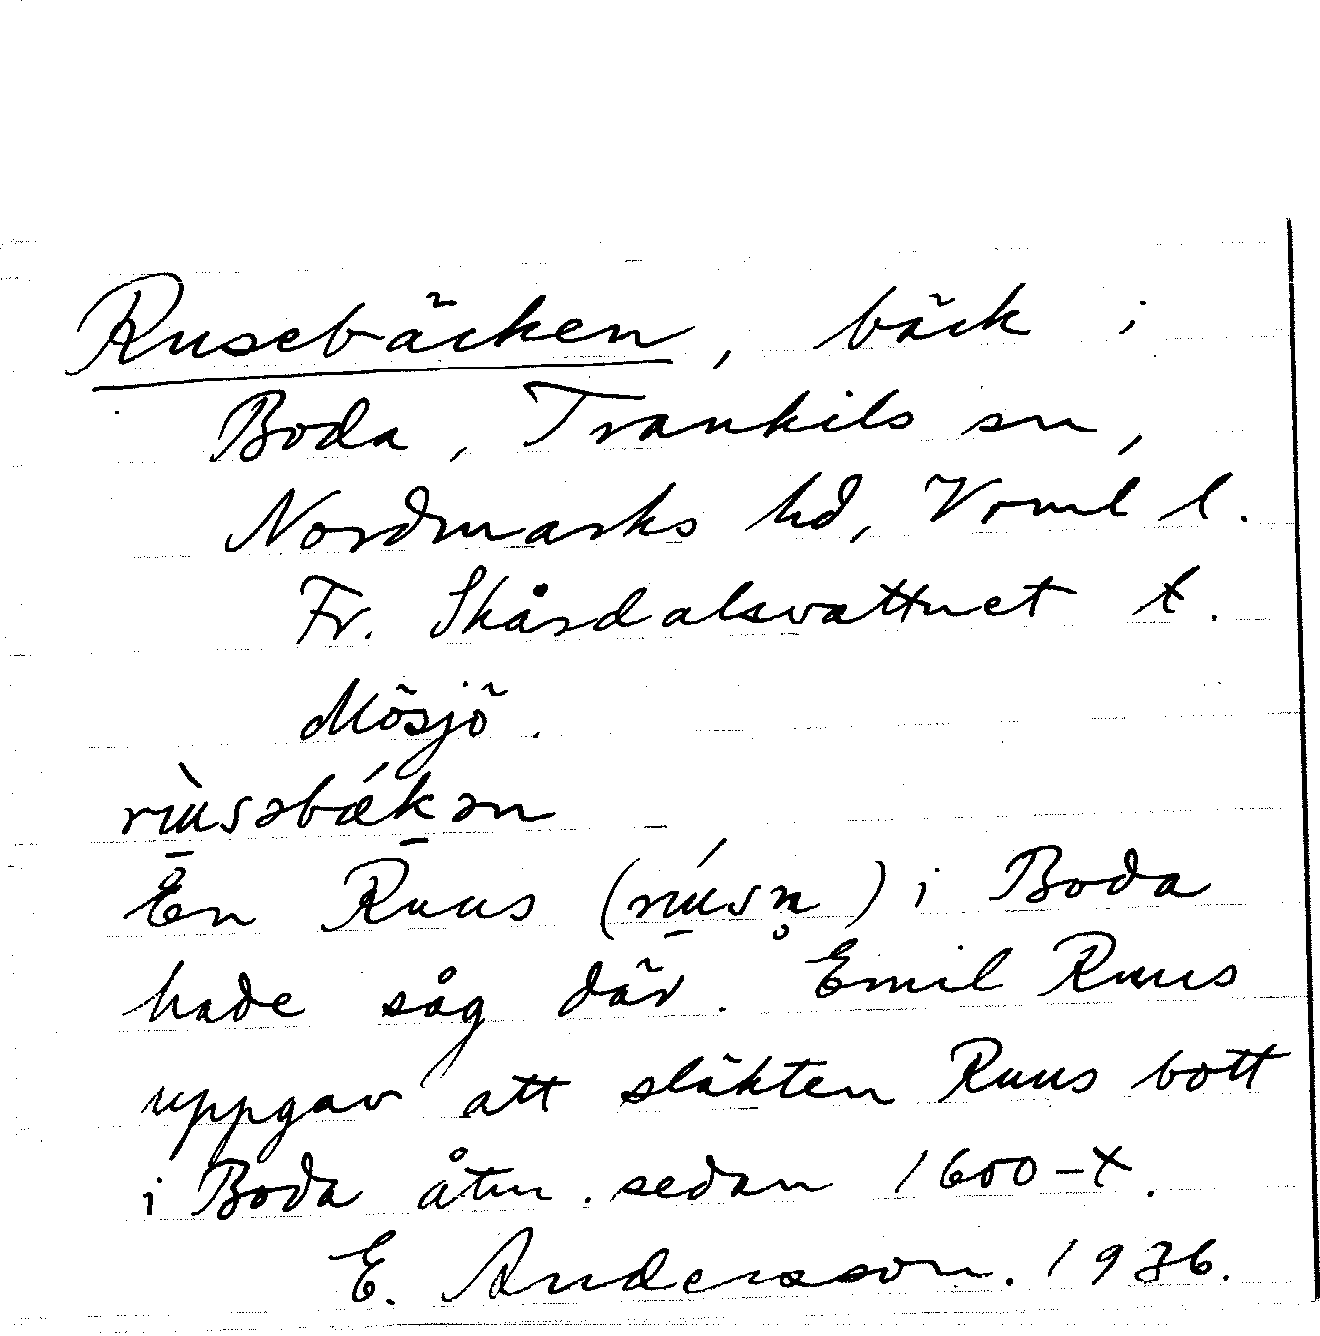 Rusebäcken, bäck i
Boda, Trankils sn,
Nordmarks hd, Vrml l.
Fr. Skårdalsvattnet t.
Mösjö.
rɯ̀səbǽkən
En Ruus (rɯ́sn̥) i Boda
hade såg där. Emil Ruus
uppgav att släkten Ruus bott
i Boda åtm. sedan 1600-t.
E. Andersson. 1936.